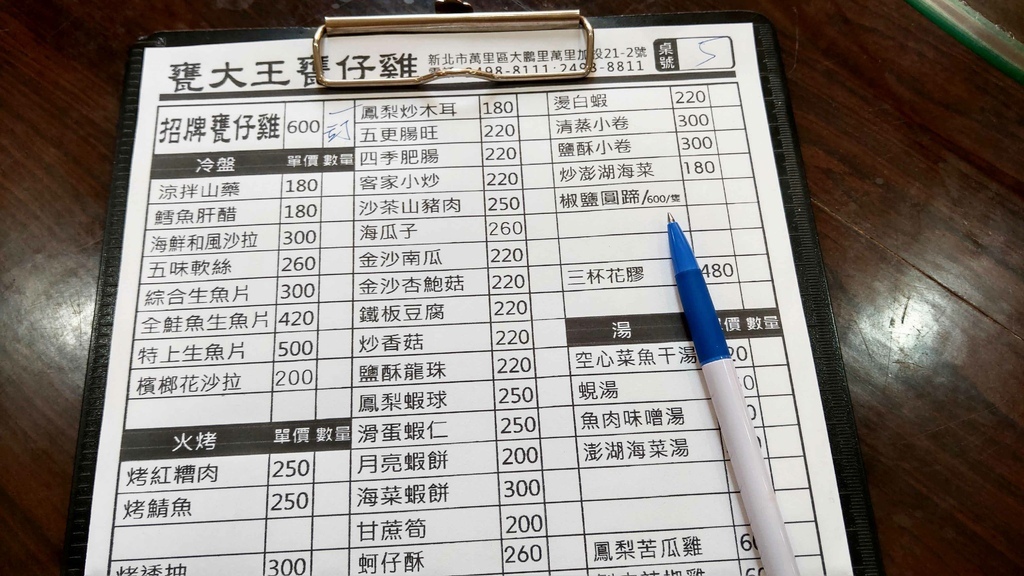 甕大王甕仔雞
新北市萬里區大鵬里萬里加投21-2號
498-8111:2498-8811
桌號 5
招牌甕仔雞 600
冷盤 單價 數量
涼拌山藥 180
鱈魚肝醋 180
海鮮和風沙拉 300
五味軟絲 260
綜合生魚片 300
全鮭魚生魚片 420
特上生魚片 500
檳榔花沙拉 200
火烤 單價 數量
烤紅糟肉 250
烤鯖魚 250
烤透抽 300
鳳梨炒木耳 180
五更腸旺 220
四季肥腸 220
客家小炒 220
沙茶山豬肉 250
海瓜子 260
金沙南瓜 220
金沙杏鮑菇 220
鐵板豆腐 220
炒香菇 220
鹽酥龍珠 220
鳳梨蝦球 250
滑蛋蝦仁 250
月亮蝦餅 200
海菜蝦餅 300
甘蔗筍 200
蚵仔酥 260
燙白蝦 220
清蒸小卷 300
鹽酥小卷 300
炒澎湖海菜 180
椒鹽圓蹄/600/隻
三杯花膠 480
湯 單價 數量
空心菜魚干湯 20
蜆湯
魚肉味噌湯
澎湖海菜湯
鳳梨苦瓜雞